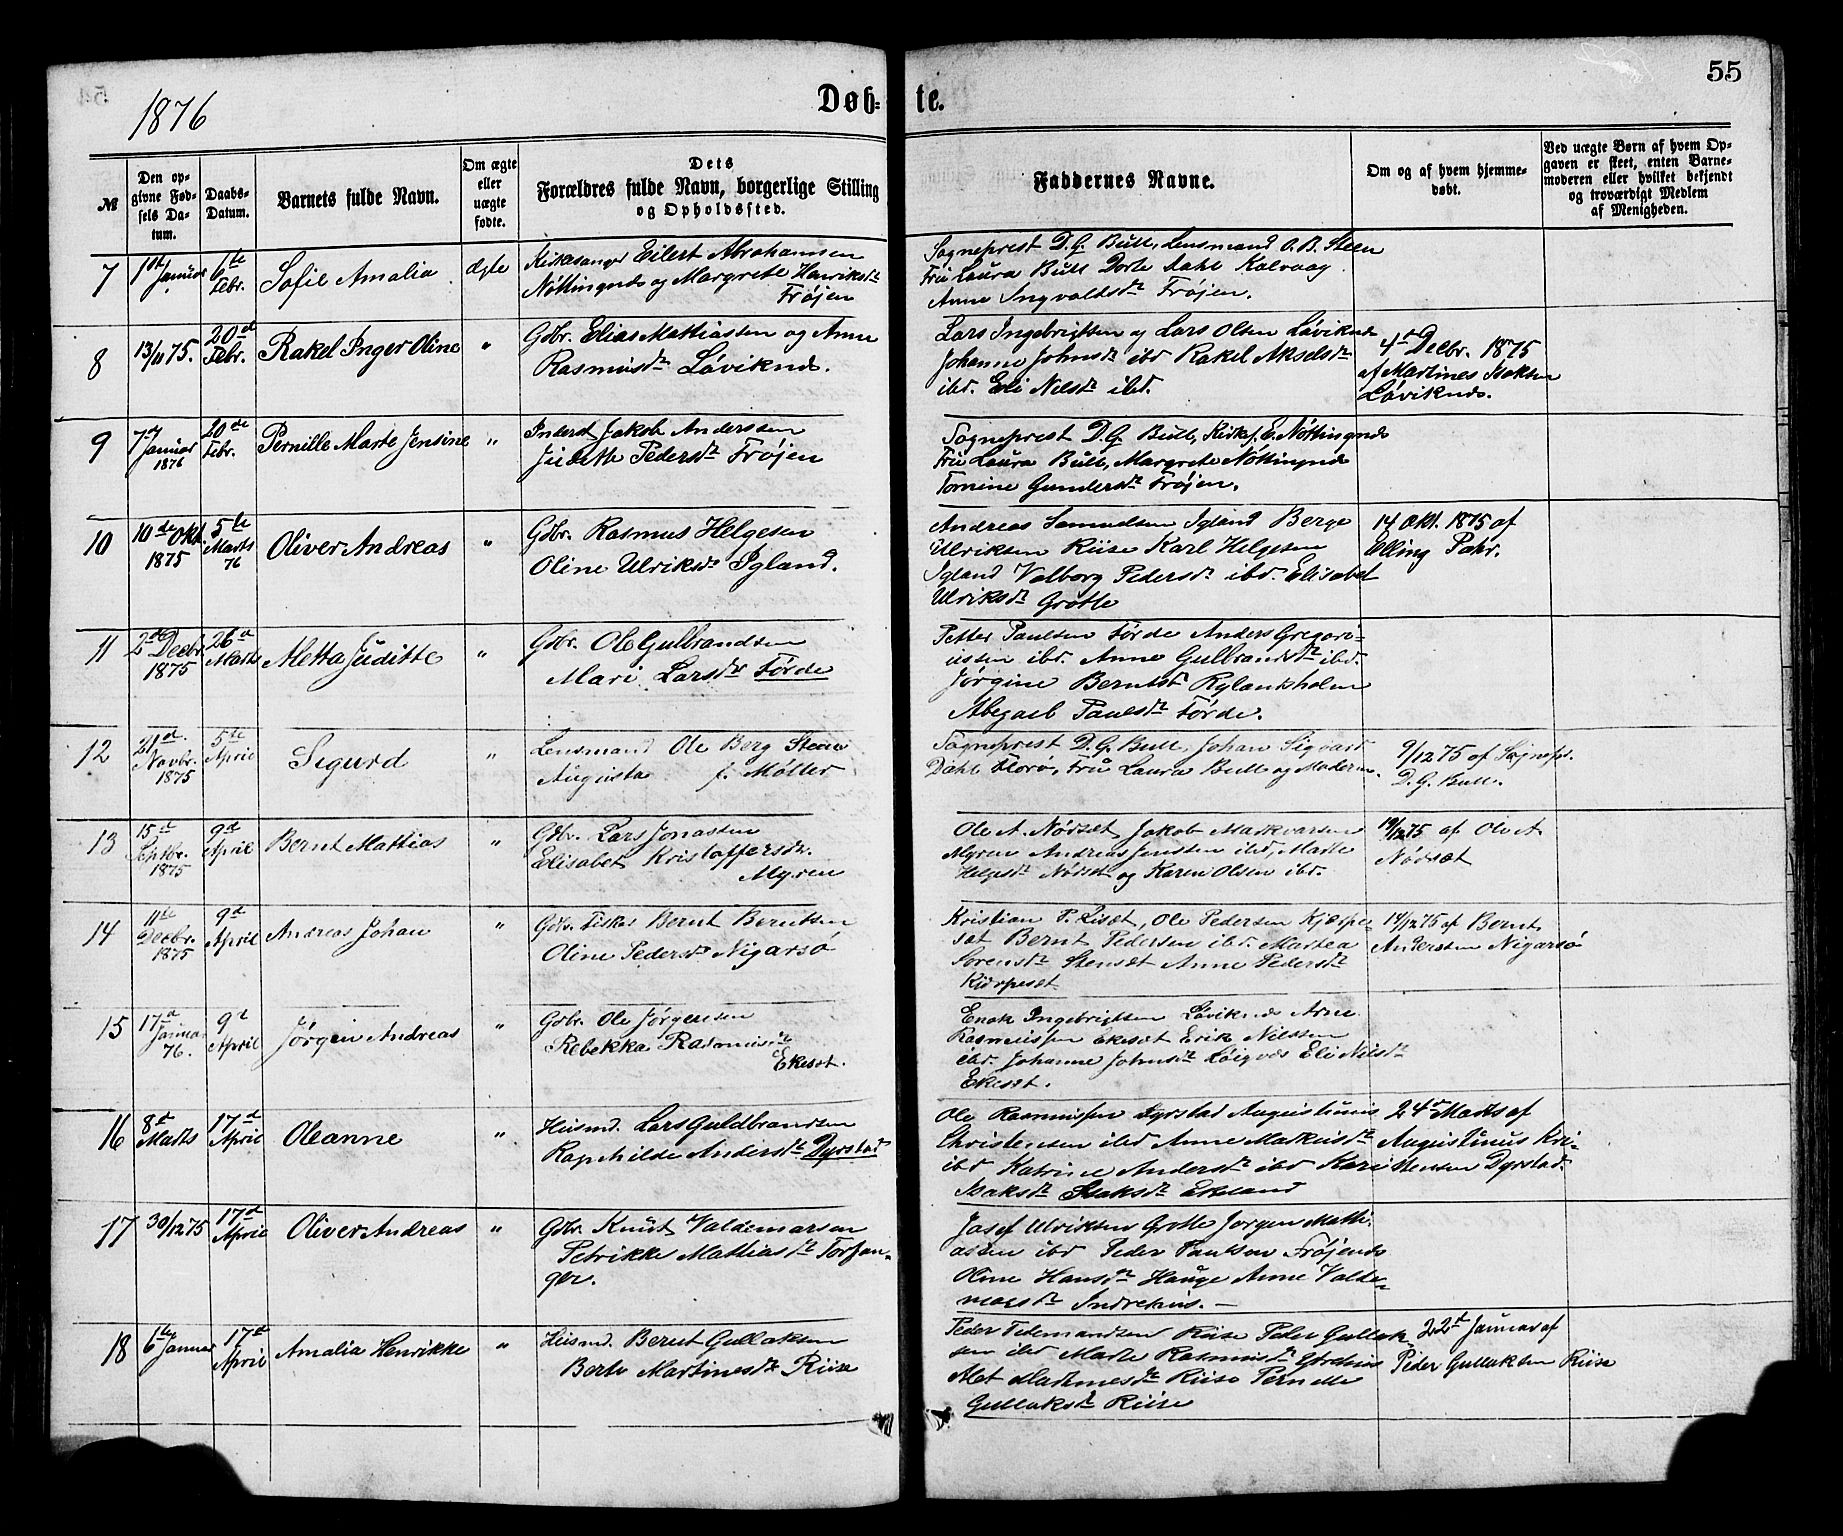 1876
Døb-
te.
55
№
Den op-
givne Fød-
sels Da-
tum.
Daabs-
Datum.
Barnets fulde Navn.
Om ægte
eller
uægte
fødte.
Dets
Forældres fulde Navn, borgerlige Stilling
og Opholdssted.
Faddernes Navne.
Om og af hvem hjemme-
døbt.
Ved uægte Børn af hvem Op-
gaven er skeet, enten Barne-
moderen eller hvilket bekjendt
og troværdigt Medlem
af Menigheden.
7
1ste Januar
6te Febr.
Sofie Amalia
ægte
Kirkesanger Eilert Abrahamsen
Nøttingnds og Margrete Henriksdr
Frøjen
Sogneprest D. G. Bull, Lensmand O. B. Steen
Fru Laura Bull Dorte Dahl Kalvaag
Anne Ingvoldsdr Frøjen.
8
13/11 75.
20de Febr.
Rakel Inger Oline
"
Gdbr. Elias Mattiassen og Anne
Rasmusdr Løviknd.
Lars Ingebrigtsen og Lars Olsen Løviknd
Johanne Johnsdr ibd Rakel Akselsdr
ibd. Eli Nilsdr ibd.
4de Decbr. 1875
af Martines Isaksen
Løviknds.
9
7de Januar 1876
20de Febr.
Pernille Marte Jensine
"
Inderst Jakob Anderssen
Judithe Pedersdr Frøjen
Sogneprest D. G. Bull, Kirks. E. Nøttingnds
Fru Laura Bull, Margrete Nøttingnds
Tomine Gundersdr Frøjen.
10
10de Okt. 1875
5te Marts 76
Oliver Andreas
"
Gdbr. Rasmus Helgesen
Oline Ulriksdr Igland.
Andreas Samuelsen Igland Berge
Ulriksen Riise Karl Helgesen
Igland Valborg Pedersdr ibd. Elisabet
Ulriksdr Grotle
14 Okt. 1875 af
Elling Pahr.
11
2de Decbr. 1875
26de Marts
Metta Juditte
"
Gdbr. Ole Gulbrandsen
Mari Larsdr Førde
Petter Paulsen Førde Anders Gregori-
ussen ibd. Anne Gulbrandsdr ibd.
Jørgine Berntsdr Rylandsholm
Abegael Paulsdr Førde.
12
21de Novbr. 1875
5te April
Sigurd
"
Lensmand Ole Berg Steen
Augusta f. Møller
Sogneprest D. G. Bull, Johan Sigvard
Dahl Florø, Fru Laura Bull og Moderen.
9/12 75 af Sognepr.
D. G. Bull.
13
15de Septbr. 1875
9de April
Bernt Mattias
"
Gdbr. Lars Jonassen
Elisabet Kristoffersdr.
Myren
Ole A. Nødset, Jakob Markvarsen
Myren Andreas Jenssen ibd, Marte
Helgesdr Nødset og Karen Olsen ibd.
19/12 75 af Ole A.
Nødset
14
11te Decbr. 1875
9de April
Andreas Johan
"
Gdbr. Fisker Bernt Berntsen
Oline Pedersdr Nigarsø
Kristian P. Liset, Ole Pedersen Kjørpe-
set Bernt Pedersen ibd. Martea
Sorensdr Stenset Anne Pedersdr
Kiørpeset
14/12 75 af Bernt
Anderssen Nigarsø
15
17de Januar 76.
9de April
Jørgen Andreas
"
Gdbr. Ole Jørgensen
Rebekka Rasmusdr
Ekeset.
Enok Ingebrigtsen Løviknds Arne
Rasmussen Ekeset Erik Nilssen
ibd. Johanne Johnsdr Eli Nilsdr
Ekeset.
16
8de Marts
17de April
Oleanne
"
Husmd. Lars Guldbrandsen
Ragnhilde Andersdr Dyrstad
Ole Rasmussen Dyrstad Augustinus
Christensen ibd Anne Markusdr
ibd Katrine Andersdr ibd Kari
Isaksdr Ekeland
24de Marts af
Augustinus Kri-
stensen Dyrstad.
17
30/12 75
17de April
Oliver Andreas
"
Gdbr. Knut Valdemarsen
Petrikke Mattiasdr Torfan-
ger.
Josef Ulriksen Grotle Jørgen Matti-
assen ibd Peder Paulsen Frøjends
Oline Hansdr Hauge Anne Valde-
marsdr Indrehus. —
18
6te Januar
17de April
Amalia Henrikke
"
Husmd. Bernt Gullaksen
Berte Martinesdr Riise
Peder Tidemandsen Riise Peder Gullak-
sen ibd Marte Rasmusdr
Alet Martinesdr Riise Pernille
Gullaksdr Riise
22de Januar af
Peder Gullaksen Riise